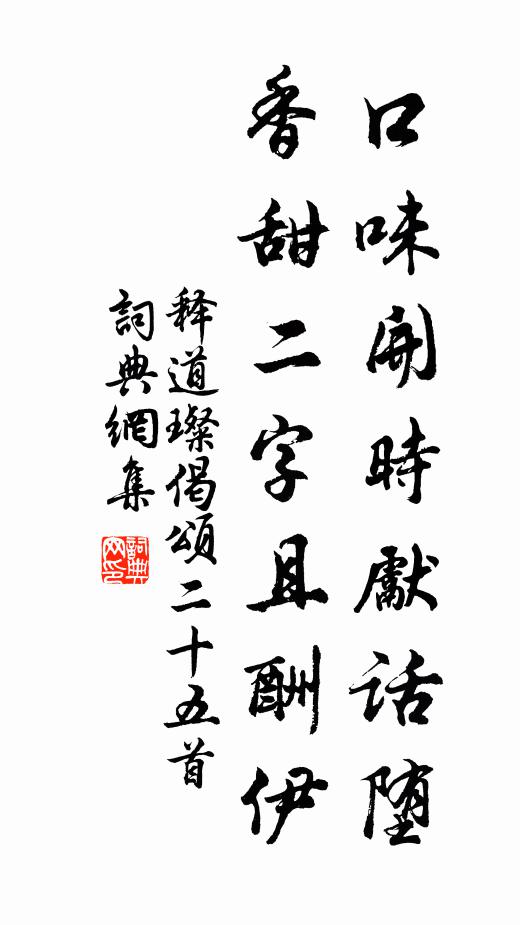 口味開時獻話堕
香甜二字且酬伊
释道璨偈頌二十五首
詞典網集
詞典网印